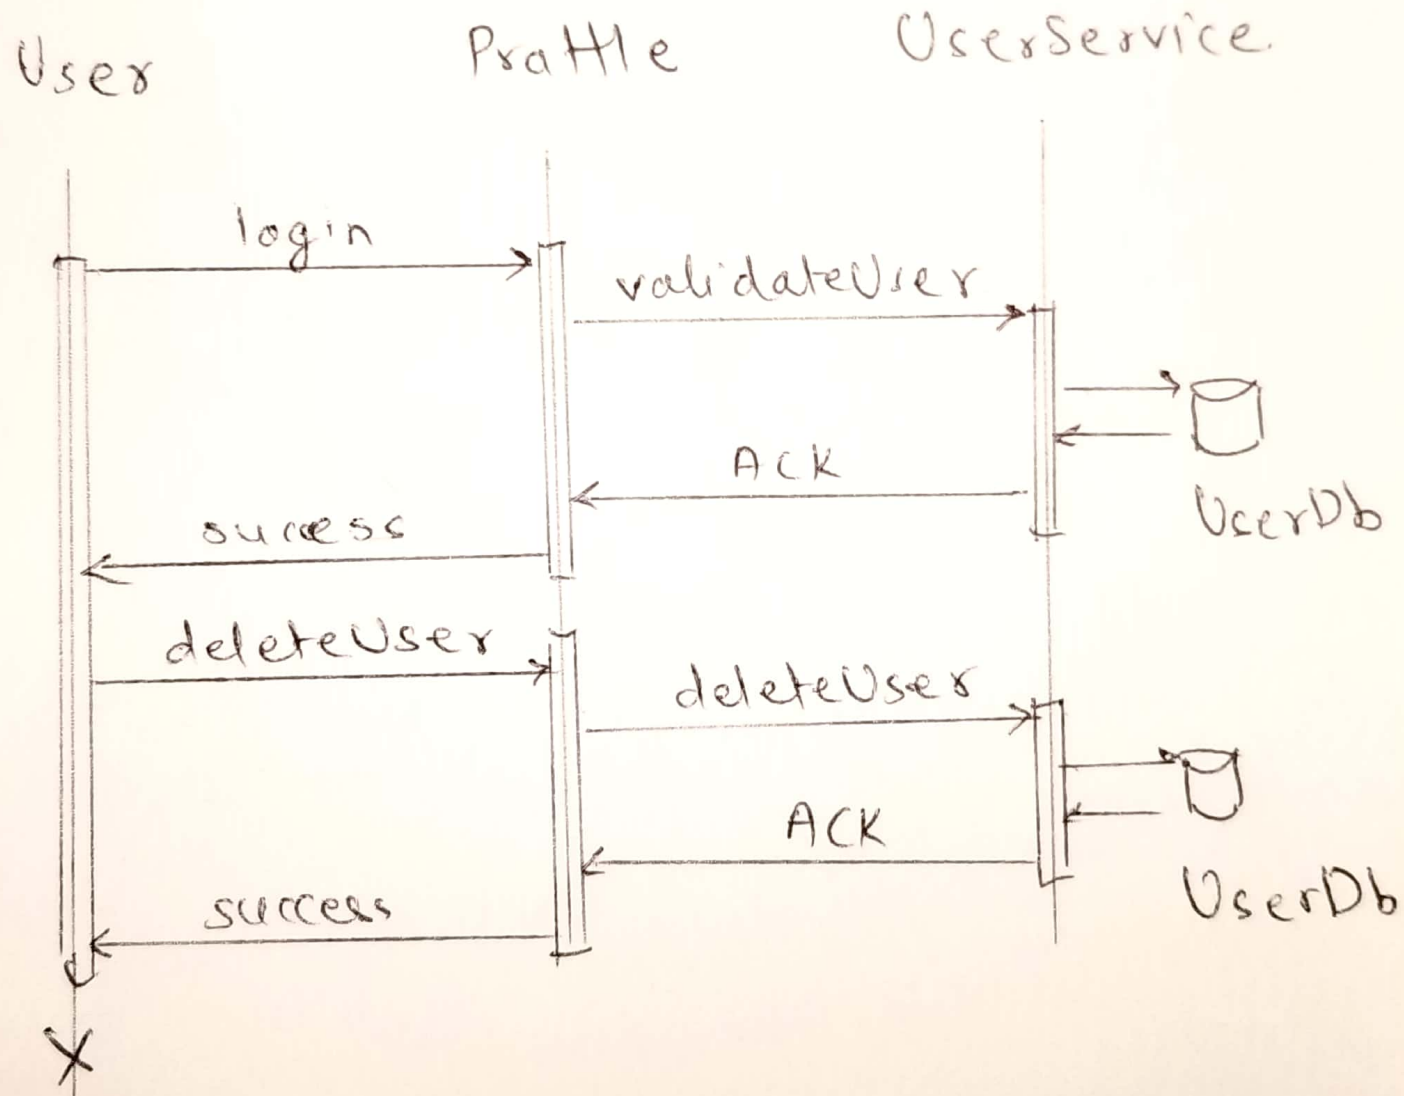 User
Prattle
UserService
login
validateUser
ACK
UserDb
success
deleteUser
deleteUser
ACK
UserDb
success